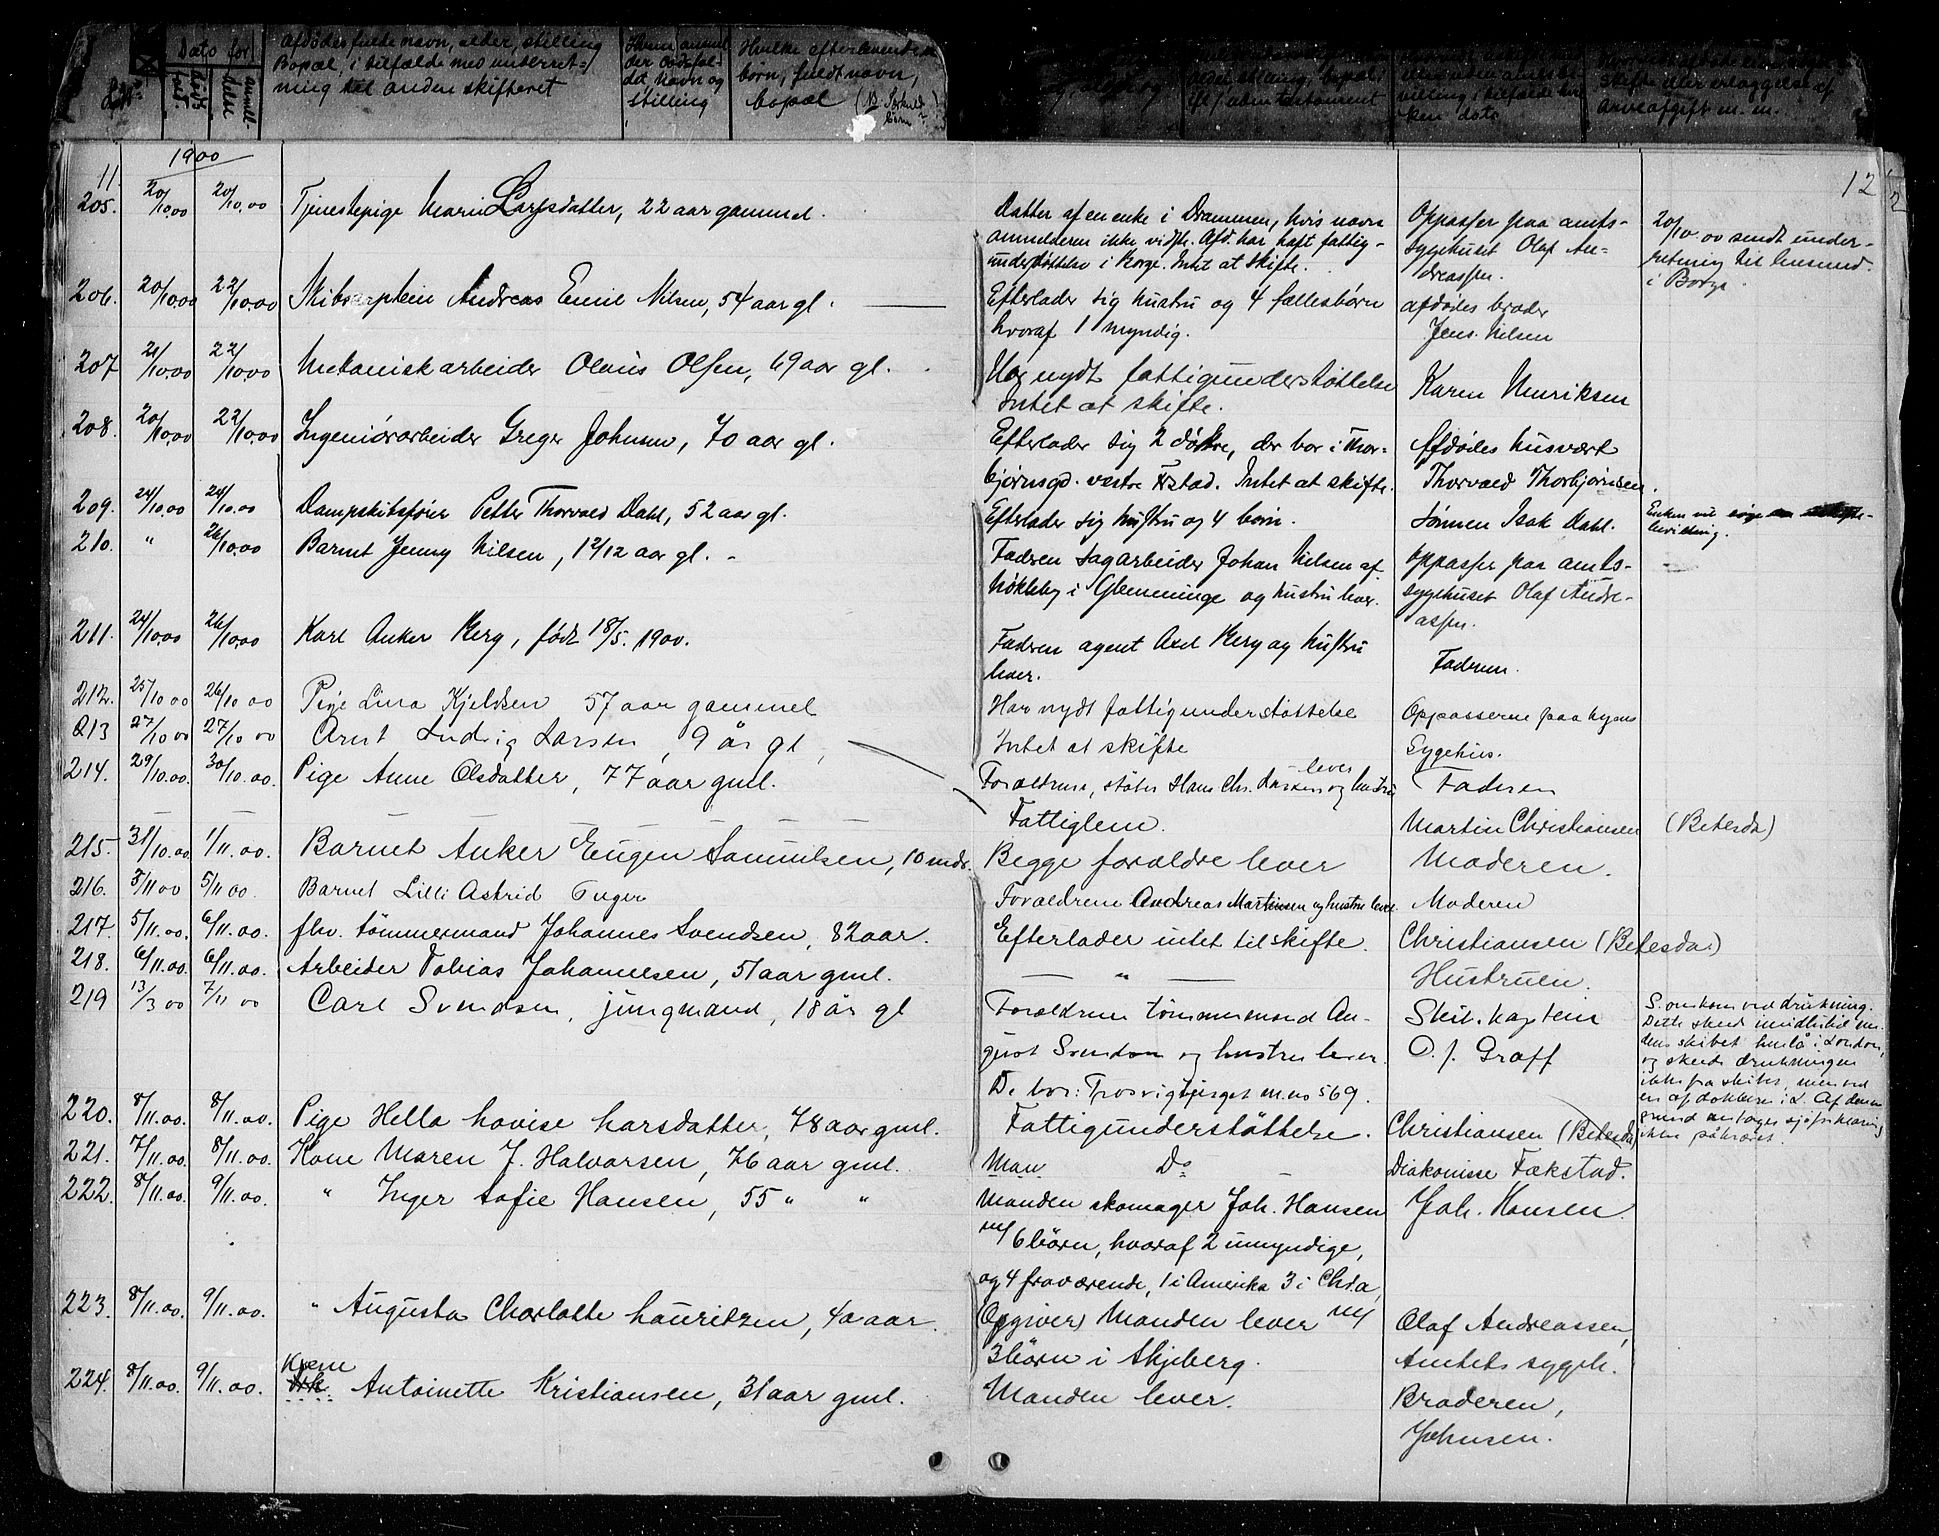 Dato for
Afdødes fulde navn, alder, stilling
Bopæl, i tilfælde med underret-
ning til anden skifteret
Hvem anmel-
der dødsfal-
det, Navn og
stilling
Hvilke efterlevende
børn, fuldt navn,
bopæl
skifte eller erlæggelse af
arveafgift m. m.
11. 1900 12
205. 20/10.00 20/10.00 Tjenestepige Marie Larsdatter, 22 aar gammel.
Datter af en enke i Drammen, hvis navn
anmelderen ikke vidste. Afd. har haft fattig-
understøttelse i Borge. Intet at skifte.
Oppasser paa amts-
sygehuset Olaf An-
dreassen.
20/10.00 sendt under-
retning til lensmd.
i Borge.
206. 20/10.00 22/10.00 Skibscaptein Andreas Emil Nilsen, 54 aar gl.
Efterlader sig hustru og 4 fællesbørn
hvoraf 1 myndig.
afdødes broder
Jens Nilsen
207 21/10.00 22/10.00 Mekanisk arbeider Olaus Olsen, 69 aar gl.
Har nydt fattigunderstøttelse
Intet at skifte.
Karen Henriksen
208. 20/10.00 22/10.00 Ingeniørarbeider Greger Johnsen, 70 aar gl.
Efterlader sig 2 døttre, der bor i Thor-
bjørnsgd. vestre Frstad. Intet at skifte.
Afdødes husvært
Thorvald Thorbjørnsen.
209. 24/10.00 24/10.00 Dampskibsfører Petter Thorvald Dahl, 52 aar gl.
Efterlader sig hustru og 4 børn.
Sønnen Isak Dahl.
Enken vil
bevilling.
210. " 26/10.00 Barnet Jenny Nilsen, 1 2/12 aar gl.
Fadren sagarbeider Johan Nilsen af
Nøkleby i Glemminge og hustru lever.
Oppasser paa amts-
sygehuset Olaf Andre-
assen.
211. 24/10.00 26/10.00 Karl Anker Berg, født 18/5. 1900.
Fadren agent Axel Berg og hustru
lever.
Fadren.
212. 25/10 00 26/10 00 Pige Lina Kjeldsen 57 aar gammel
Har nydt fattigunderstøttelse
Intet at skifte
Oppasserne paa byens
Sygehus.
213 27/10 00 27/10 00 Arnt Ludvig Larsen, 9 år gl,
Forældrene, støber Hans Chr. Larsen og hustru lever
Faderen
214. 29/10.00. 30/10.00. Pige Anne Olsdatter, 77 aar gml.
Fattiglem.
Martin Christiansen (Betesda)
215. 31/10.00. 1/11.00. Barnet Anker Eugen Samuelsen, 10 mdr.
Begge forældre lever Moderen.
216. 3/11 00 5/11 00. Barnet Lilli Astrid Inger
Forældrene Andreas Martinsen og hustru lever Moderen
217. 5/11.00. 6/11.00. flv. tømmermand Johannes Svendsen, 82 aar.
Efterlader intet til skifte. Christiansen (Betesda)
218. 6/11.00. 6/11.00. Arbeider Tobias Johannesen, 51 aar gml.
" Hustruen.
219 13/3 00 7/11 00 Carl Svendsen, jungmand, 18 år gl
Forældrene tømmermand Au-
gust Svendsen og hustru lever.
D. bor: Trosvigbjerget m.no 569.
Skib. kaptein
O. J. Graff
S. omkom ved drukning.
Dette skede imidlertid me-
dens skibet henlå i London,
og skede drukningen
ikke fra skibet, men ved
en af dokkene i L. Af denne
grund antages sjøforklaring
ikke påkrævet.
220. 8/11.00. 8/11.00. Pige Hella Lovise Larsdatter, 78 aar gml.
Fattigunderstøttelse. Christiansen (Betesda)
221. 7/11.00. 8/11.00. Kone Maren J. Halvorsen, 76 aar gml.
Man Do Diakonisse Fækstad.
222. 8/11.00. 9/11.00. " Inger Sofie Hansen, 55 " "
Manden skomager Joh. Hansen
m/ 6 børn, hvoraf 2 umyndige,
og 4 fraværende, 1 i Amerika 3 i Chr.a,
Joh. Hansen.
223. 8/11.00. 9/11.00. " Augusta Charlotte Lauritzen, 40 aar.
(Opgiver) Manden lever m/
3 børn i Skjeberg.
Olaf Andreassen,
Amtets sygeh.
224. 8/11.00. 9/11.00. Kone Antoinette Kristiansen, 31 aar gml.
Manden lever.
Broderen,
Johnsen.